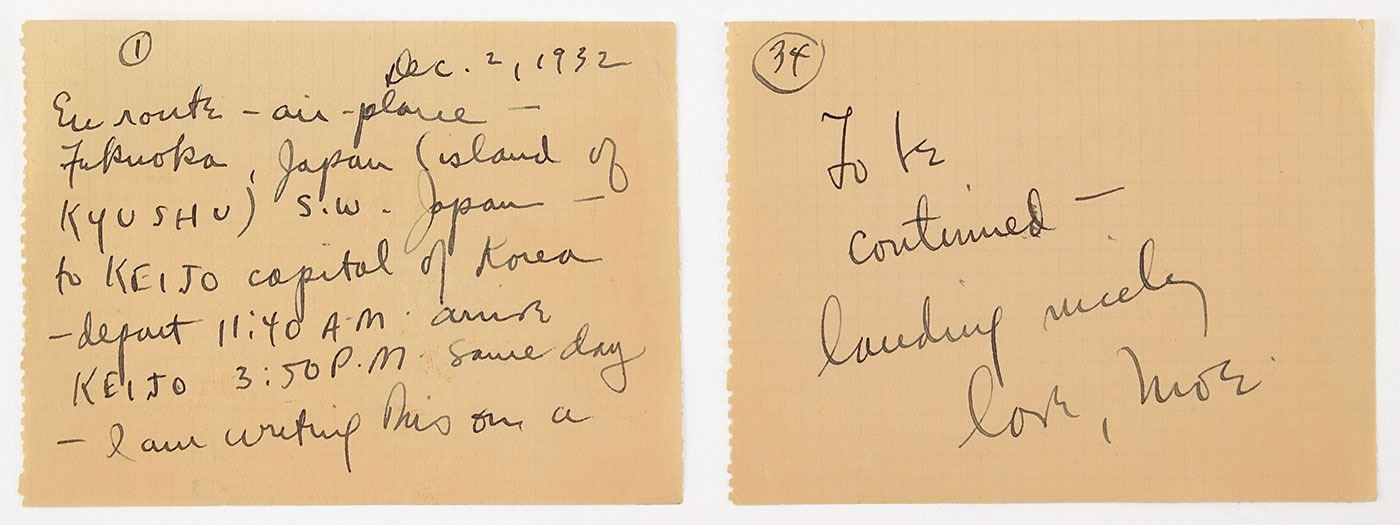 1
Dec. 2, 1932
En route - air-plane -
Fukuoka, Japan (island of
KYUSHU) S.W. Japan -
to KEIJO capital of Korea
- depart 11:40 A.M. arrive
KEIJO 3:50 P.M. same day
- I am writing this on a
34
To be
continued -
landing nicely
love, Moe